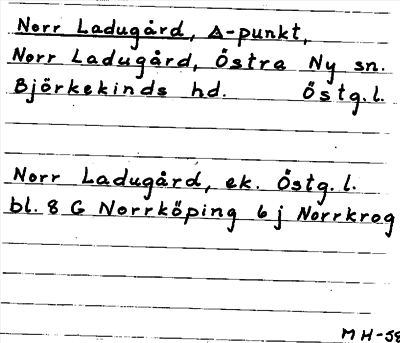 Norr Ladugård, Δ-punkt,
Norr Ladugård, Östra Ny sn.
Björkekinds hd. Östg.l.
Norr Ladugård, ek. Östg.l.
bl. 8 G Norrköping 6 j Norrkrog
MH-58